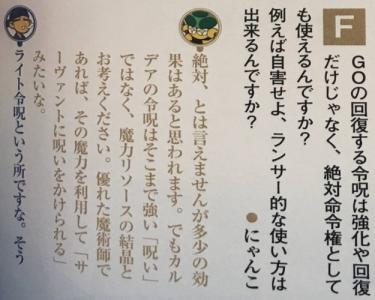 F GOの回復する令呪は強化や回復
だけじゃなく、絶対命令権として
も使えるんですか?
例えば自害せよ、ランサー的な使い方は
出来るんですか?
●にゃんこ
絶対、とは言えませんが多少の効
果はあると思われます。でもカル
デアの令呪はそこまで強い「呪い」
ではなく、魔力リソースの結晶と
お考えください。優れた魔術師で
あれば、その魔力を利用して「サ
ーヴァントに呪いをかけられる」
みたいな。
ライト令呪という所ですな。そう